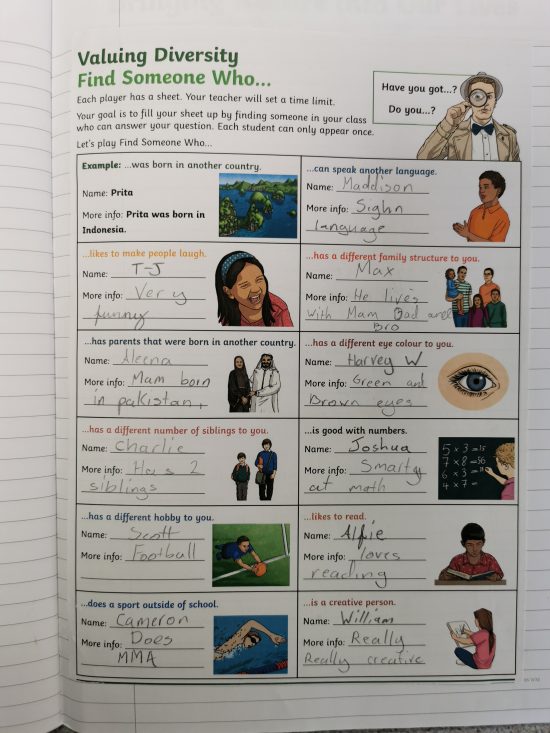 Valuing Diversity
Find Someone Who...
Each player has a sheet. Your teacher will set a time limit.
Your goal is to fill your sheet up by finding someone in your class
who can answer your question. Each student can only appear once.
Let's play Find Someone Who...
Have you got...?
Do you...?
Example: ...was born in another country.
Name: Prita
More info: Prita was born in
Indonesia.
...can speak another language.
Name: Maddison
More info: Sighn
language
...likes to make people laugh.
Name: T-J
More info: Very
funny
...has a different family structure to you.
Name: Max
More info: He lives
with Mam Dad and
Bro
...has parents that were born in another country.
Name: Aleena
More info: Mam born
in pakistan,
...has a different eye colour to you.
Name: Harvey W
More info: Green and
Brown eyes
...has a different number of siblings to you.
Name: Charlie
More info: Has 2
siblings
...is good with numbers.
Name: Joshua
More info: Smarty
at math
5 × 3 = 15
7 × 8 = 56
6 × 3 =
4 × 7 =
...has a different hobby to you.
Name: Scott
More info: Football
...likes to read.
Name: Alfie
More info: loves
reading
...does a sport outside of school.
Name: Cameron
More info: Does
MMA
...is a creative person.
Name: William
More info: Really
Really creative